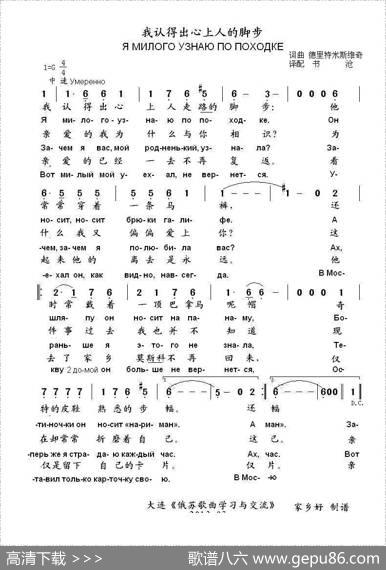 我认得出心上人的脚步
Я МИЛОГО УЗНАЮ ПО ПОХОДКЕ
词曲 德里特米斯维奇
译配 书 沧
1=G 4/4
中速 Умеренно
1 1· 6 6 1 1 2 1 7 6 5 3 - 0 0 0 6
我 认 得 出 心 上 人 走 路 的 脚 步; 他
Я ми-ло-го у-зна-ю по по-ход-ке. Он
亲 爱 的 我 为 什 么 与 你 相 识? 为
За-чем я вас, мой род-нень-кий, уз-на-ла? За-
亲 爱 的 已 经 一 去 不 再 复 返。 看
Вот ми-лый мой у-ех-ал, не вер-нет-ся. У-
6· 5 5 5 5 5 7 6 5 1 - #1 - 0 2
常 常 穿 着 一 条 马 裤, 还
но-сит, но-сит брю-ки га-ли-фе. А
什 么 我 又 偏 偏 爱 上 你? 这
-чем, за-чем я по-лю-би-ла вас? Ах,
起 来 他 的 离 去 是 永 远。 他
-е-хал он, как вид-но, нав-сег-да. В Мос-
2· 1 7 6 6 2 1 7 6 1· 6 6 - 0 0 0 6
时 常 戴 着 一 顶 巴 拿 马 呢 帽 奇
шля-пу он но-сит на па-на-му, Бо-
件 事 过 去 我 也 并 不 知 道 现
рань-ше я э-то-го не зна-ла, Те-
去 了 家 乡 莫斯科 不 再 回 来, 仅
кву 2 до-мой он боль-ше не вер-нет-ся, Ос-
7 7 7 7 7 1 7 6 6 - 5 - 0 2 6 - 6 0 0
特 的 皮 鞋 熟 悉 的 步 幅。 还 幅。
D.C.
ти-ноч-ки он но-сит «на-ри-ман». А ман». За-
在 却 常 常 折 磨 着 自 己。 这 己。 亲
перь же я стра-да-ю каж-дый час. Ах, час. Вот
仅 是 留 下 自 己 的 卡 片。 仅 片。 亲
-та-вил толь-ко кар-точ-ку сво-ю. В Мос-ю
大连《俄苏歌曲学习与交流》 家乡好 制谱
高清下载 >>> 歌谱八六 www.gepu86.com